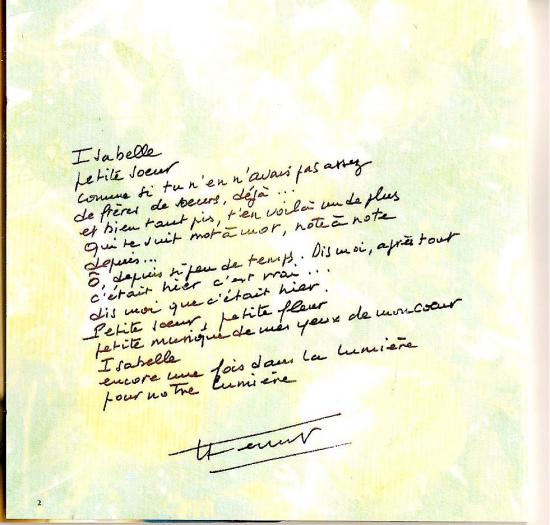 Isabelle
petite soeur
comme si tu n'en n'avais pas assez
de frères de soeurs, déjà...
et bien tant pis, t'en voilà un de plus
qui te suit mot à mot, note à note
depuis...
Ô, depuis si peu de temps. Dis moi, après tout
c'était hier c'est vrai...
dis moi que c'était hier.
Petite soeur, petite fleur
petite musique de mes yeux de mon coeur
Isabelle
encore une fois dans la lumière
pour notre lumière
2